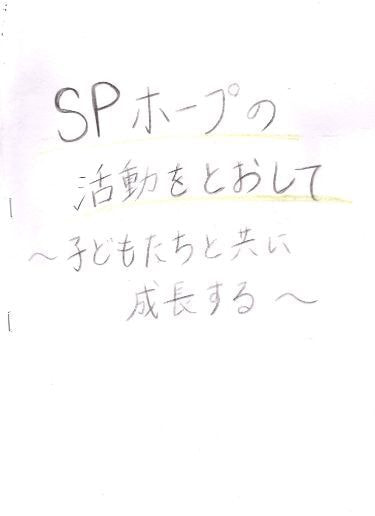 SPホープの
活動をとおして
～子どもたちと共に
成長する～